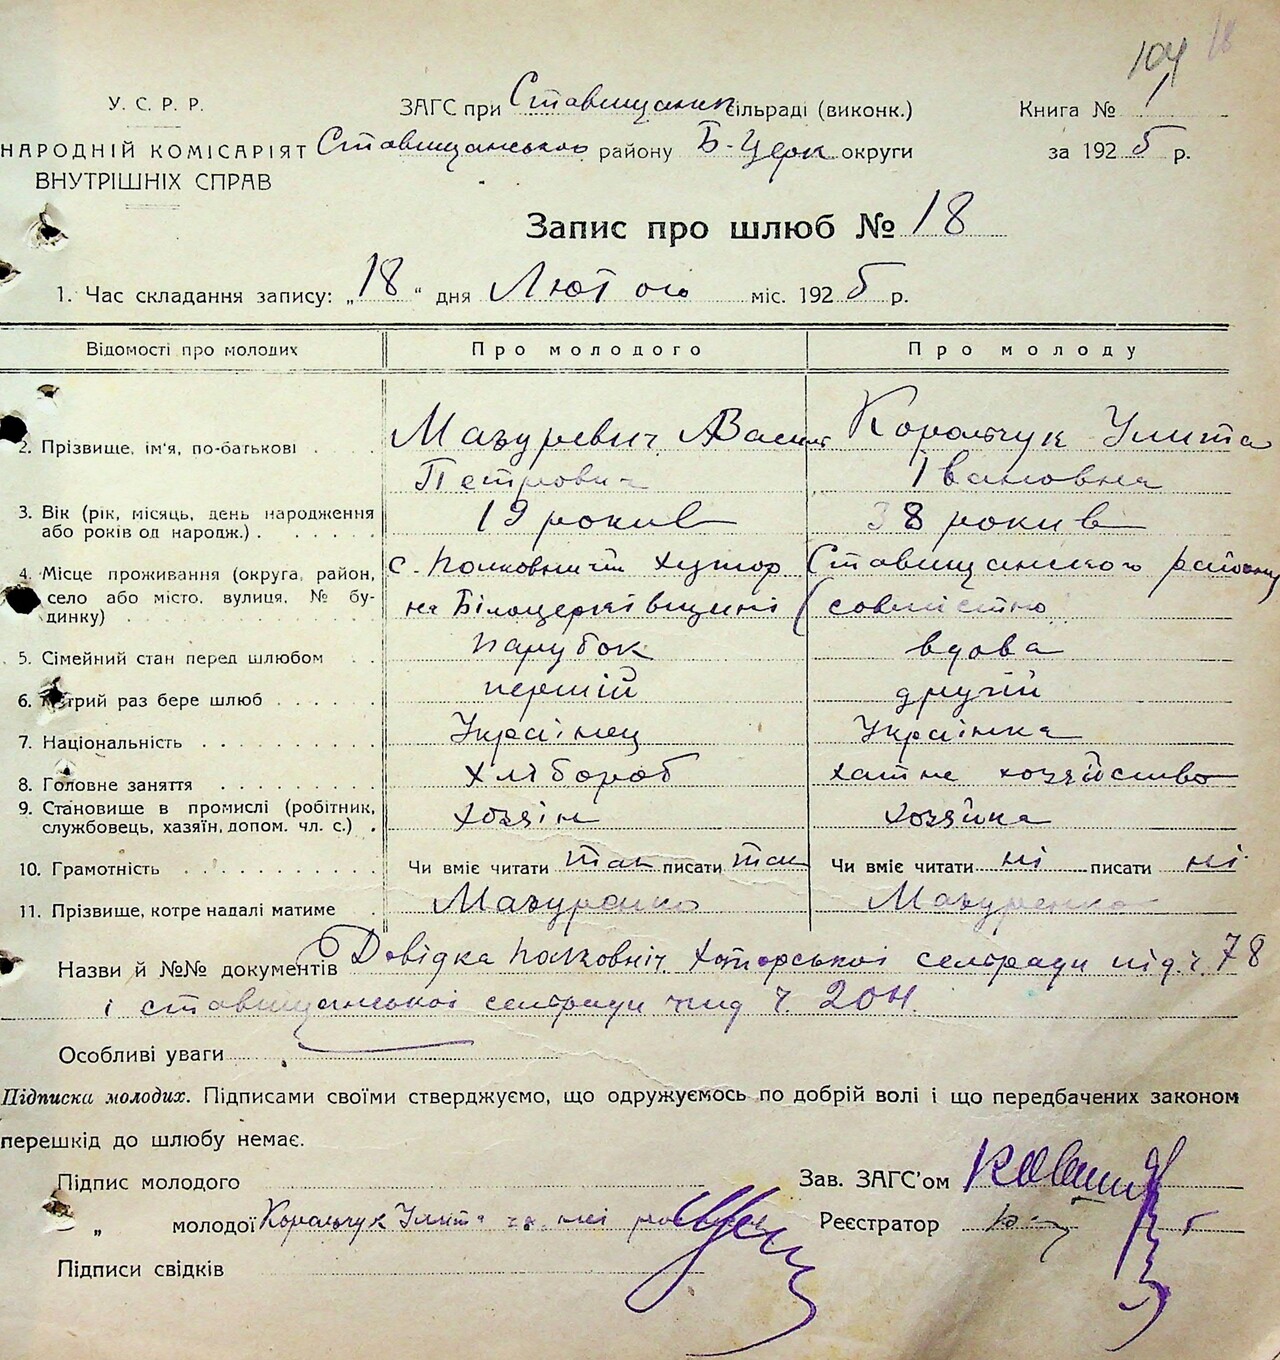 104 18
У. С. Р. Р.
ЗАГС при Ставищанск сільраді (виконк.)
Книга №
НАРОДНІЙ КОМІСАРІЯТ
Ставищанського району Б-Церк округи
за 1925 р.
ВНУТРІШНІХ СПРАВ
Запис про шлюб № 18
1. Час складання запису: „18“ дня Лютого міс. 1925 р.
Відомості про молодих
Про молодого
Про молоду
2. Прізвище, ім'я, по-батькові
Мазуревич Васил
Петрович
Корольчук Улита
Івановна
3. Вік (рік, місяць, день народження
або років од народж.)
19 років
38 років
4. Місце проживання (округа, район,
село або місто, вулиця, № бу-
динку)
с. Полковничій хутор
на Білоцерківщині
Ставищанского району
(совместно
5. Сімейний стан перед шлюбом
парубок
вдова
6. Котрий раз бере шлюб
перший
другий
7. Національність
Українец
Українка
8. Головне заняття
хлібороб
хатне хозяйство
9. Становище в промислі (робітник,
службовець, хазяїн, допом. чл. с.)
хозяін
хозяйка
10. Грамотність
Чи вміє читати так писати так
Чи вміє читати ні писати ні
11. Прізвище, котре надалі матиме
Мазуренко
Мазуренко
Назви й №№ документів Довідка Полковнич. Хуторськоі селради під ч. 78
і ставищанськоі селради під ч. 204.
Особливі уваги
Підписка молодих. Підписами своїми стверджуємо, що одружуємось по добрій волі і що передбачених законом
перешкід до шлюбу немає.
Підпис молодого
Зав. ЗАГС'ом
„ молодої Корольчук Улита
Реєстратор
Підписи свідків